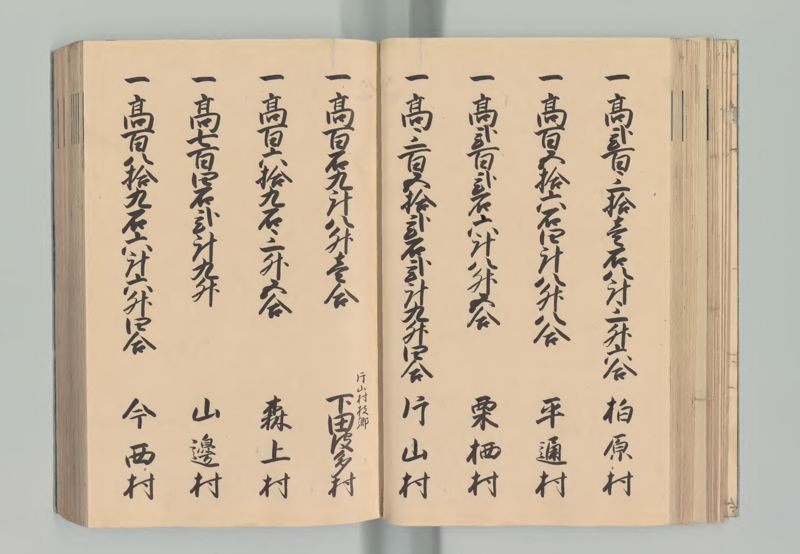 一高弐百三拾壱石八斗三升六合 柏原村
一高百五拾六石四斗八升八合 平通村
一高弐百弐石六斗八升五合 栗栖村
一高三百五拾弐石弐斗九升四合 片山村
一高百石九斗八升壱合 片山村枝郷 下田波多村
一高百六拾九石三升五合 森上村
一高七百四石弐斗九升 山邊村
一高百八拾九石六斗六升四合 今西村